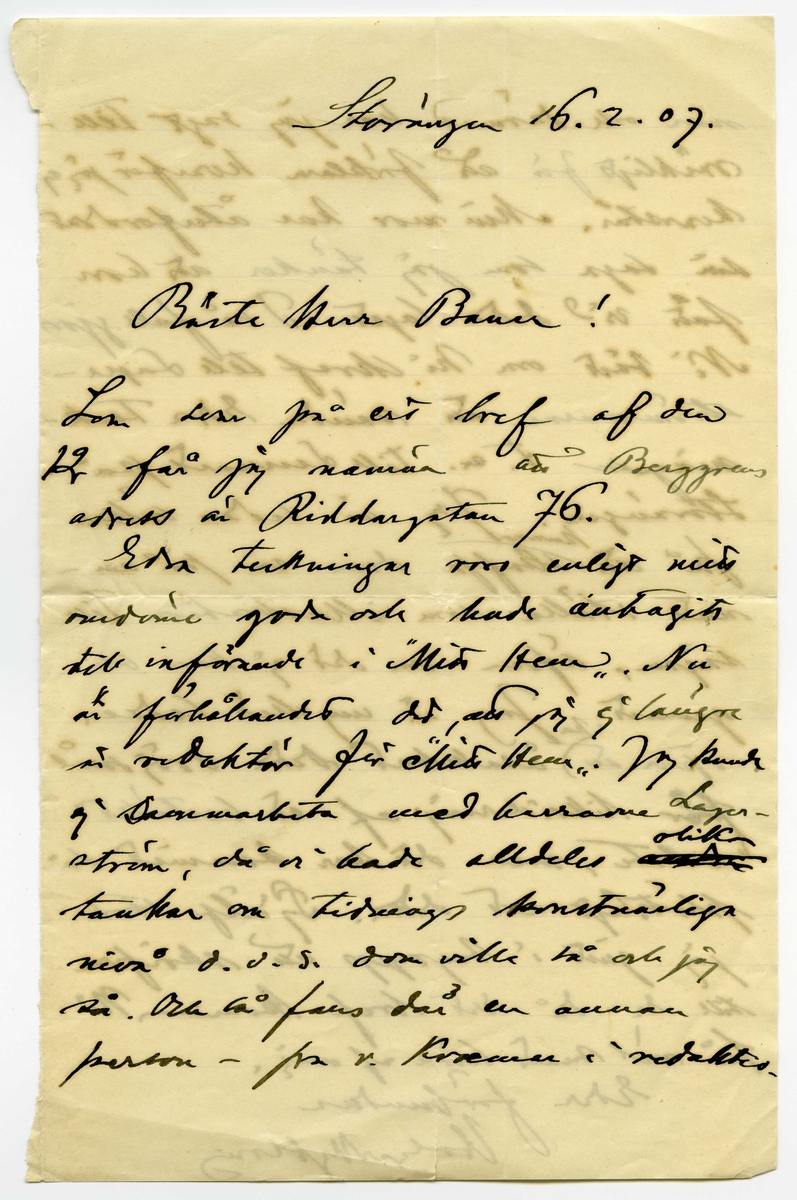 Storängen 16.2.07.
Bäste Herr Bauer!
Som svar på ert bref af den
12 får jag nämna att Berggrens
adress är Riddargatan 76.
Edra teckningar voro enligt mitt
omdöme goda och hade antagits
till införande i "Mitt Hem". Nu
är förhållandet det, att jag ej längre
är redaktör för "Mitt Hem". Jag kunde
ej sammarbeta med herrarne Lager-
ström, då vi hade alldeles olika
tankar om tidnings konstnärliga
nivå d.v.s. dom ville så och jag
så. Och så fans där en annan
person – fru v. Kræmer i redaktio-